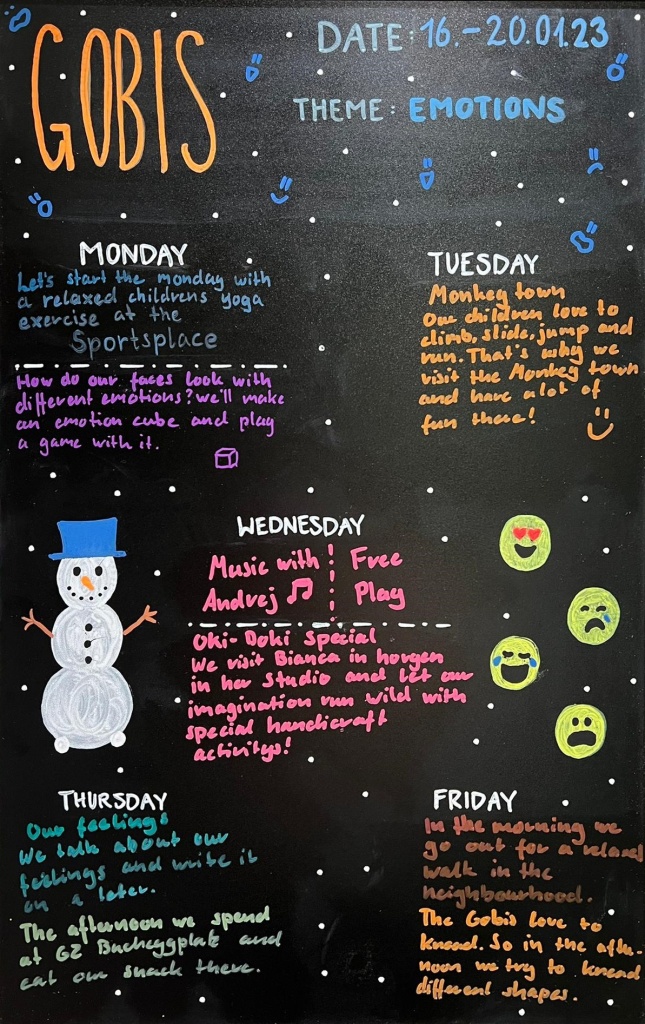 GOBIS
DATE: 16.-20.01.23
THEME: EMOTIONS
MONDAY
Let's start the monday with
a relaxed childrens yoga
exercise at the
Sportsplace
How do our faces look with
different emotions? we'll make
an emotion cube and play
a game with it.
TUESDAY
Monkey town
Our children love to
climb, slide, jump and
run. That's why we
visit the Monkey town
and have a lot of
fun there!
WEDNESDAY
Music with
Andrej
Free
Play
Oki-Doki Special
We visit Bianca in horgen
in her Studio and let our
imagination run wild with
special handicraft
activitys!
THURSDAY
Our feelings
We talk about our
feelings and write it
on a later.
The afternoon we spend
at GZ Bucheggplatz and
eat our snack there.
FRIDAY
In the morning we
go out for a relaxed
walk in the
neighbourhood.
The Gobis love to
knead. So in the after-
noon we try to knead
different shapes.